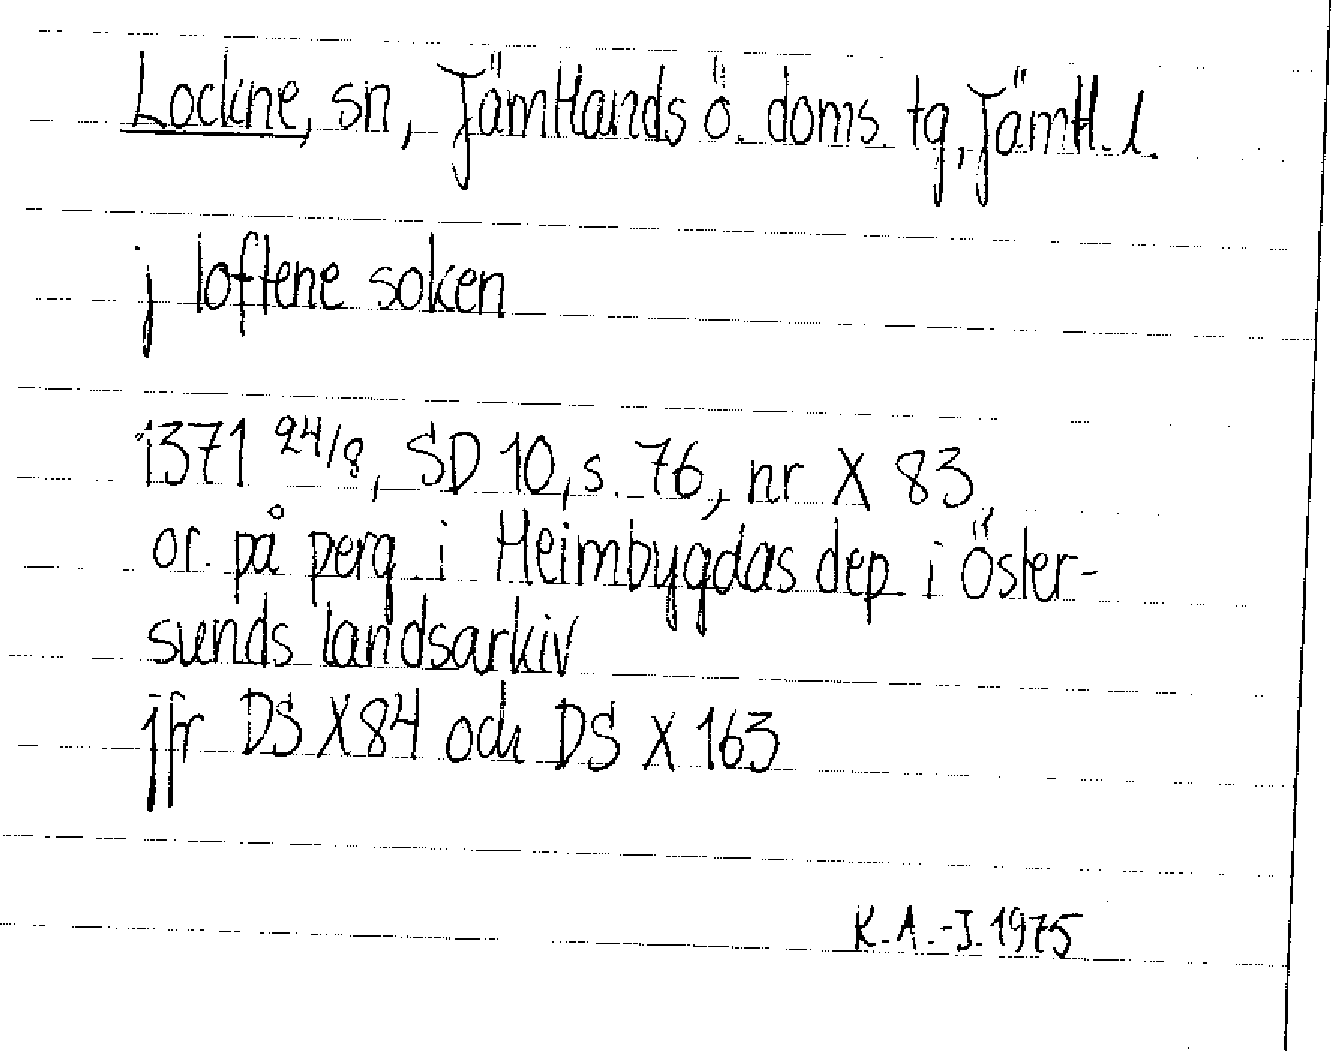 Lockne, sn, Jämtlands ö. doms. tg, Jämtl. l.
j loftene soken
1371 24/8, SD 10, s. 76, nr X 83,
or. på perg i Heimbygdas dep i Öster-
sunds landsarkiv
jfr DS X 84 och DS X 163
K.A.-J. 1975